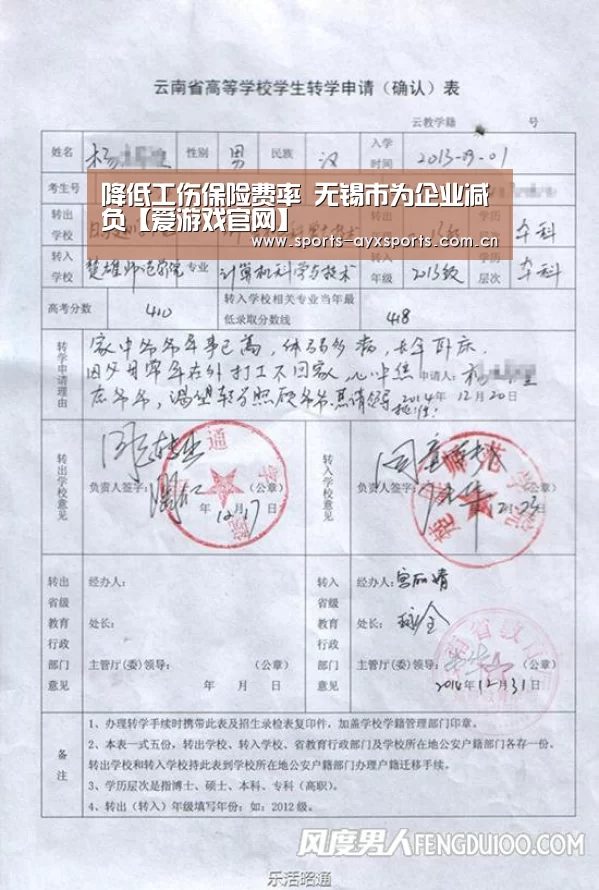 云南省高等学校学生转学申请（确认）表
云教学籍 号
姓名 杨 性别 男 民族 汉 入学时间 2013-09-01
考生号
降低工伤保险费率 无锡市为企业减
负【爱游戏官网】
www.sports-ayxsports.com.cn
转出学校 级 学历层次 本科
转入学校 楚雄师范学院 专业 计算机科学与技术 转入年级 2013级 学历层次 本科
高考分数 410 转入学校相关专业当年最低录取分数线 418
转学申请理由
家中爷爷年事已高，体弱多病，长年卧床，
因父母常年在外打工不回家，心中挂 申请人：杨
爷爷，渴望转 照顾爷爷 恳请领导批准！ 2014年12月20日
转出学校意见 同意转出 负责人签字： （公章） 年 月 日 12 17
转入学校意见 同意 负责人签字： （公章） 12 23
转出省级教育行政部门意见
经办人：
处长：
主管厅(委)领导： （公章）
年 月 日
转入省级教育行政部门意见
经办人：
处长：
主管厅(委)领导： （公章）
2014年12月31日
备注
1、办理转学手续时携带此表及招生录检表复印件，加盖学校学籍管理部门印章。
2、本表一式五份，转出学校、转入学校、省教育行政部门及学校所在地公安户籍部门各存一份。
转出学校和转入学校持此表到学校所在地公安户籍部门办理户籍迁移手续。
3、学历层次是指博士、硕士、本科、专科（高职）。
4、转出（转入）年级填写年份；如：2012级。
风度男人FENGDU100.COM
乐活昭通